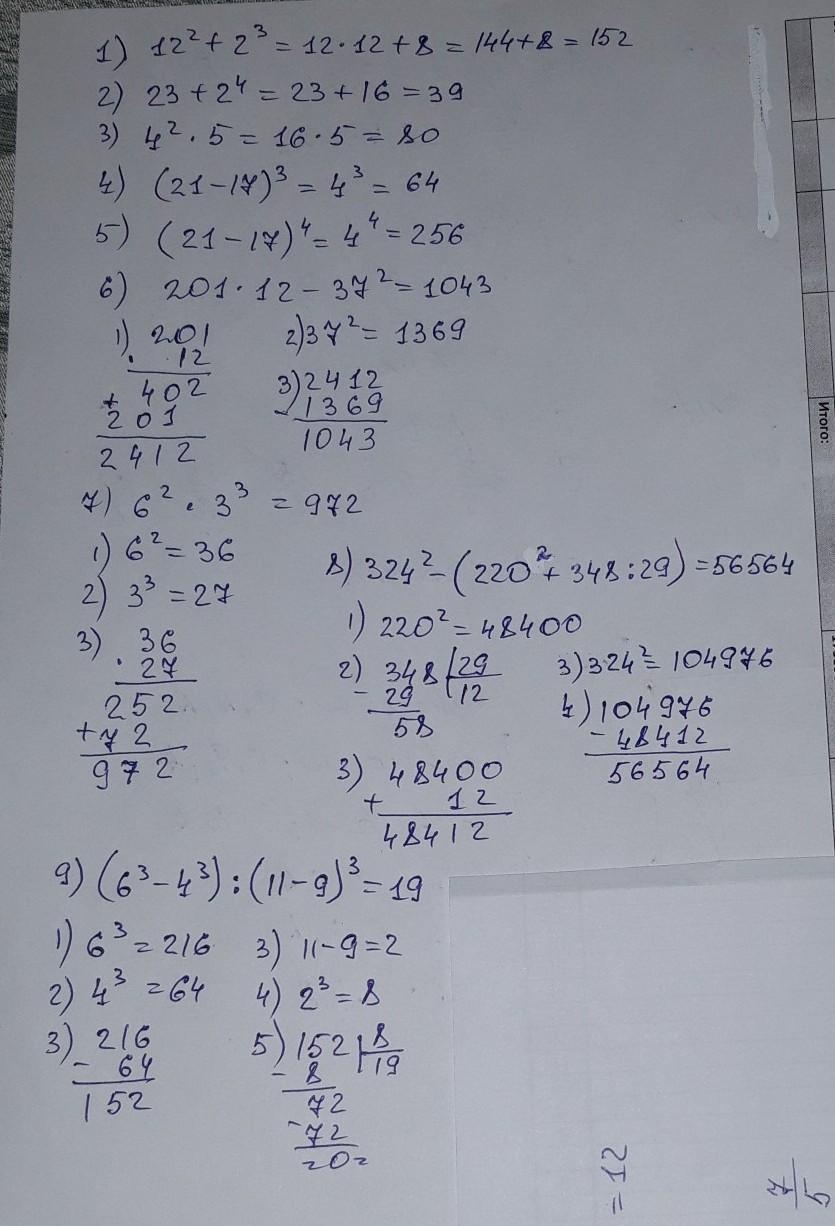 1) 12² + 2³ = 12·12 + 8 = 144 + 8 = 152
2) 23 + 2⁴ = 23 + 16 = 39
3) 4² · 5 = 16 · 5 = 80
4) (21 − 17)³ = 4³ = 64
5) (21 − 17)⁴ = 4⁴ = 256
6) 201 · 12 − 37² = 1043
1) 201
· 12
402
+
201
2412
2) 37² = 1369
3) 2412
− 1369
1043
7) 6² · 3³ = 972
1) 6² = 36
2) 3³ = 27
3) 36
· 27
252
+ 72
972
8) 324² − (220² + 348 : 29) = 56564
1) 220² = 48400
2) 348 | 29
− 29 | 12
58
3) 48400
+ 12
48412
3) 324² = 104976
4) 104976
− 48412
56564
9) (6³ − 4³) : (11 − 9)³ = 19
1) 6³ = 216
2) 4³ = 64
3) 216
− 64
152
3) 11 − 9 = 2
4) 2³ = 8
5) 152 | 8
− 8 | 19
72
− 72
=0=
Итого:
= 12
7
5